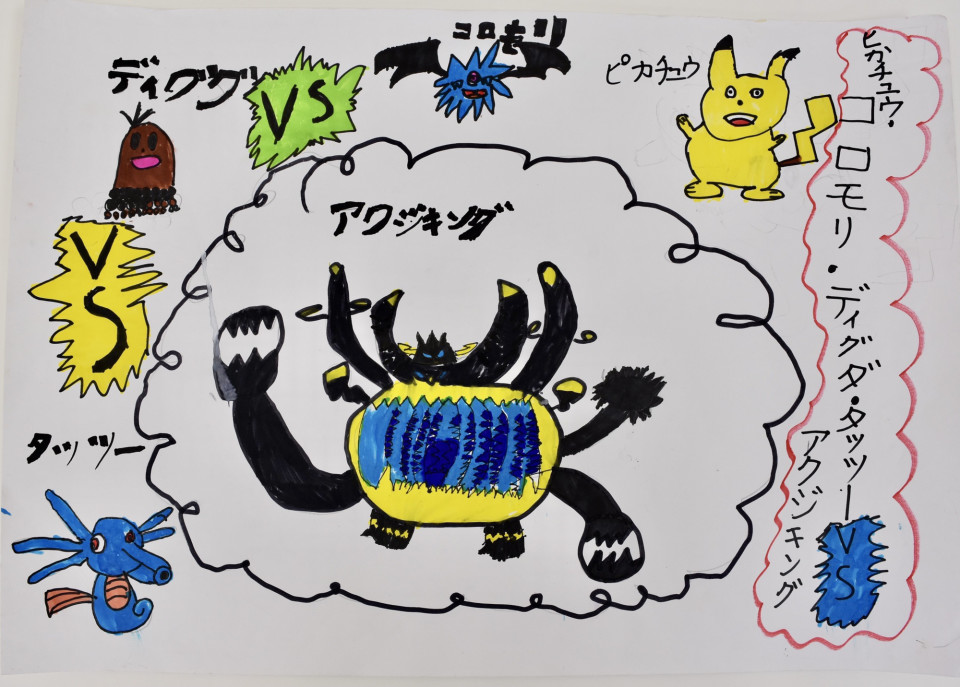 コロモリ
ディグダ
VS
ピカチュウ
アクジキング
VS
タッツー
ピカチュウ・コロモリ・ディグダ・タッツー
VS
アクジキング